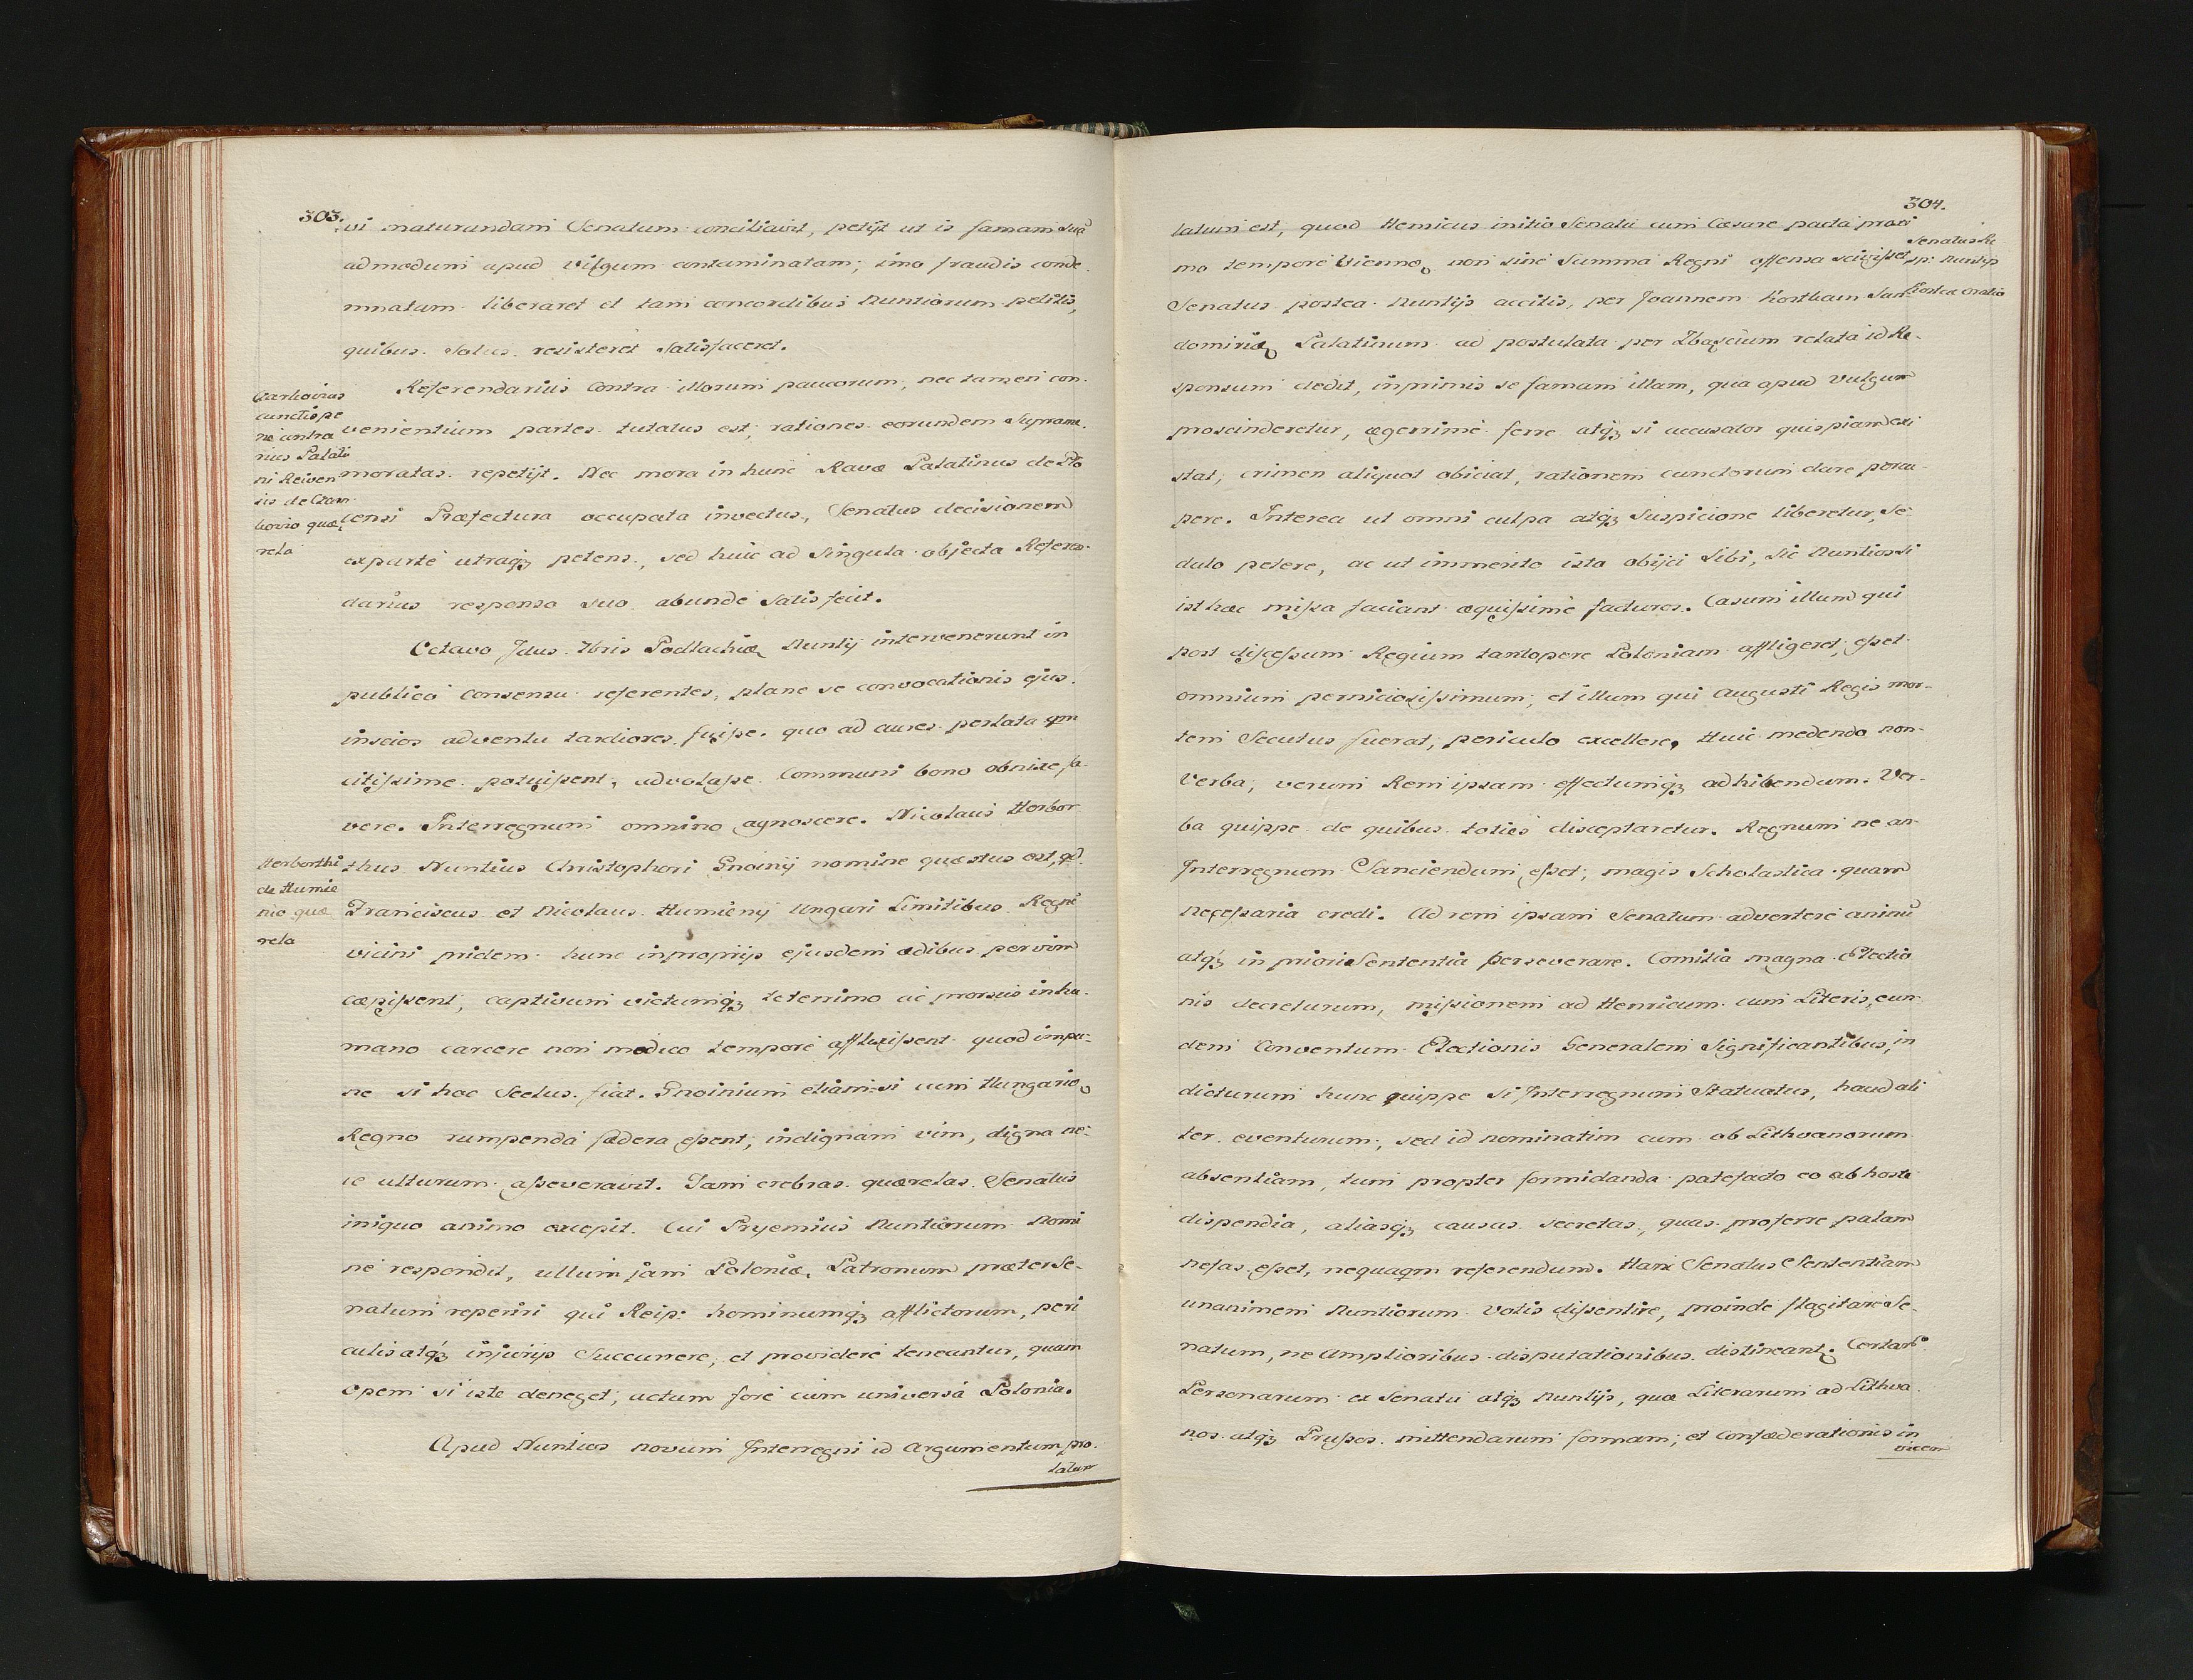 303.
vi maturandam Senatum conciliavit, petijt ut is famam suã
admodum apud vulgum contaminatam; imo fraudis conde-
mnatam liberaret et tam concordibus Nuntiorum petitis,
quibus solus resisteret satisfaceret.
Czarkovius
cunctis pe
ne contra
rius Palati
ni Reiven
sis de Czar
kovio quæ
rela
Referendarius contra illorum paucorum, nec tamen con-
venientium partes tutatus est; rationes eorundem supra me-
moratas repetijt. Nec mora in hunc Ravæ Palatinus de Plo
censi Præfectura occupata invectus, Senatus decisionem
ex parte utraqꝫ petens, sed huic ad singula objecta Referen-
darius responso suo abunde satisfecit.
Octavo Idus 7bris Podlachiæ Nuntij intervenerunt in
publico consensu referentes, plane se convocationis ejus
inscios adventu tardiores fuisse. quo ad aures perlata qm
citissime potuissent, advolasse. Communi bono obnixe fa-
vere. Interregnum omnino agnoscere. Nicolaus Herbor
Herborthi
de Humie
nio quæ
rela
thus Nuntius Christophori Gnoinij nomine quæstus est, qd
Franciscus et Nicolaus Humienij Ungari Limitibus Regni
vicini pridem hunc in proprijs ejusdem ædibus per vim
cæpissent, captivum victumqꝫ teterrimo ac prorsus inhu-
mano carcere non modico tempore afflixissent quod impu-
ne si hoc Scelus fiat. Gnoinium etiam si cum Hungariæ
Regno rumpenda fædera essent, indignam vim, digna ne-
ce ulturum asseveravit. Tam crebras quærelas Senatus
iniquo animo excepit. Cui Pryemius Nuntiorum Nomi
ne respondit, ullum jam Poloniæ Patronum præter Se-
natum reperiri qui Reip: hominumqꝫ afflictorum, peri
culis atqꝫ injurijs succurrere, et providere teneantur, quam
opem si iste deneget, actum fore cum universa Polonia.
Apud Nuntios novum Interregni id Argumentum pro-
latum
304.
latum est, quod Henricus initio Senatu cum Cæsare pacta proxi
mo tempore Viennæ non sine summa Regni offensa scivisset
Senatus Re
sp: Nuntijs
Kostcæ oratio
Senatus postea Nuntijs accitis, per Joannem Kostkam San-
domiriæ Palatinum ad postulata per Zbaszcium relata id Re-
sponsum dedit, inprimis se famam illam, qua apud vulgum
proscinderetur, ægerrime ferre atqꝫ si accusator quispiam exi
stat, crimen aliquot obiciat, rationem cunctorum dare para-
pere. Interea ut omni culpa atqꝫ suspicione liberetur, se-
dulo petere, ac ut immerito ista obijci sibi, sic Nuntios si
isthæc missa faciant æquissime facturos. Casum illum qui
post discessum Regium tantopere Poloniam affligeret, esset
omnium perniciosissimum, et illum qui Augusti Regis mor-
tem secutus fuerat, periculo excellere, Huic medendo non
Verba, verum Rem ipsam effectumqꝫ adhibendum. Ver-
ba quippe de quibus toties disceptaretur. Regnum ne an
Interregnum Sanciendum esset, magis Scholastica quam
necessaria credi. Ad rem ipsam Senatum advertere animũ
atqꝫ in priori Sententia perseverare. Comitia magna Electio
nis decreturum, missionem ad Henricum cum Literis, eun-
dem Conventum Electionis Generalem significantibus, in
dicturum hunc quippe si Interregnum Statuatur, haud ali
ter eventurum, sed id nominatim cum ob Lithvanorum
absentiam, tum propter formidanda patefacto eo ab hoste
dispendia, aliasqꝫ causas secretas, quas proferre palam
nefas esset, nequaqm referendum. Hanc Senatus Sententiam
unanimem Nuntiorum votis dissentire, proinde flagitare Se-
natum, ne amplioribus disputationibus distineant.
Personarum ex Senatu atqꝫ Nuntijs, quæ Literarum ad Lithva-
nos atqꝫ Prussos mittendarum formam, et Confæderationis in
vicem